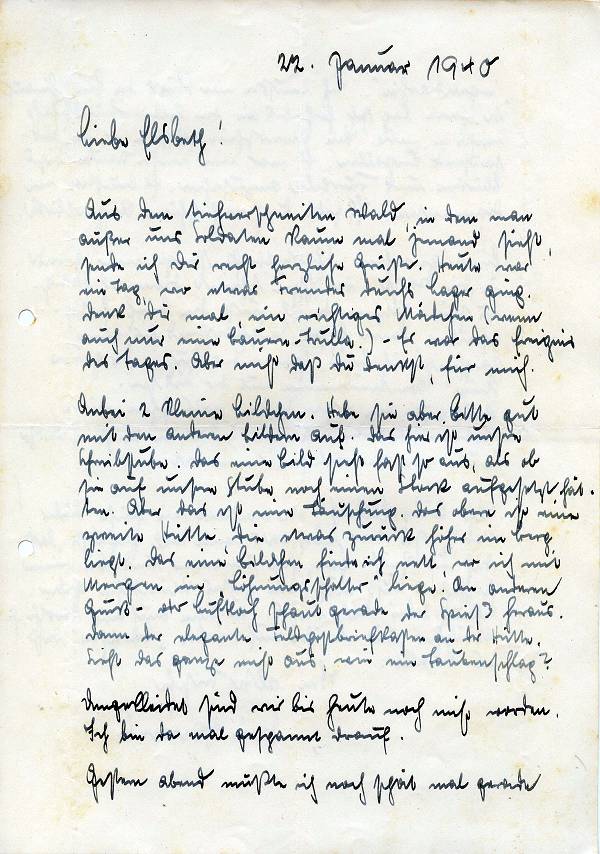 22. Januar 1940
Liebe Elsbeth!
Aus dem tiefverschneiten Wald, in dem man
außer uns Soldaten kaum mal jemand sieht,
sende ich Dir recht herzliche Grüße. Heute war
ein Tag, wo etwas Fremdes durchs Lager ging.
Denk Dir mal, ein richtiges Mädchen (wenn
auch nur eine Bauern-Trulla.) - Es war das Ereignis
des Tages. Aber nicht daß Du denkst, für mich.
Anbei 2 kleine Bildchen. Hebe sie aber bitte gut
mit den anderen Bildern auf. Das hier ist unsere
Schreibstube. Das eine Bild sieht fast so aus, als ob
sie auf unsere Stube noch einen Stock aufgesetzt hät-
ten. Aber das ist eine Täuschung. Das obere ist eine
zweite Hütte, die etwas zurück höher im Berg
liegt. Das eine Bildchen finde ich nett, wo ich mit
Mergen im "Löhnungsschalter" liege. Am anderen
Guck- oder Luftloch schaut gerade der Spieß heraus.
Dann der elegante Feldpostbriefkasten an der Hütte.
Sieht das ganze nicht aus, wie ein Taubenschlag?
Umgekleidet sind wir bis heute noch nicht worden.
Ich bin da mal gespannt drauf.
Gestern abend mußte ich noch spät mal gerade